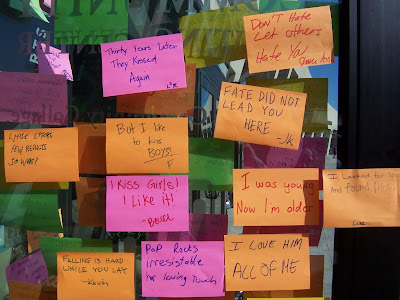 Thirty Years Later
They Kissed
Again
Don't Hate
Let others
Hate You
FATE DID NOT
LEAD YOU
HERE -JK
LITTLE EFFORT
FEW RESULTS
SO WHAT?
But I like
to kiss
BOYS!
F
I KISS Girls!
I Like it!
I was young
Now I'm older
I Looked for love
And found
FALLING IS HARD
WHILE YOU LAY
- Kevin
POP Rocks
irresistable
her loving Touch
I LOVE HIM
ALL OF ME